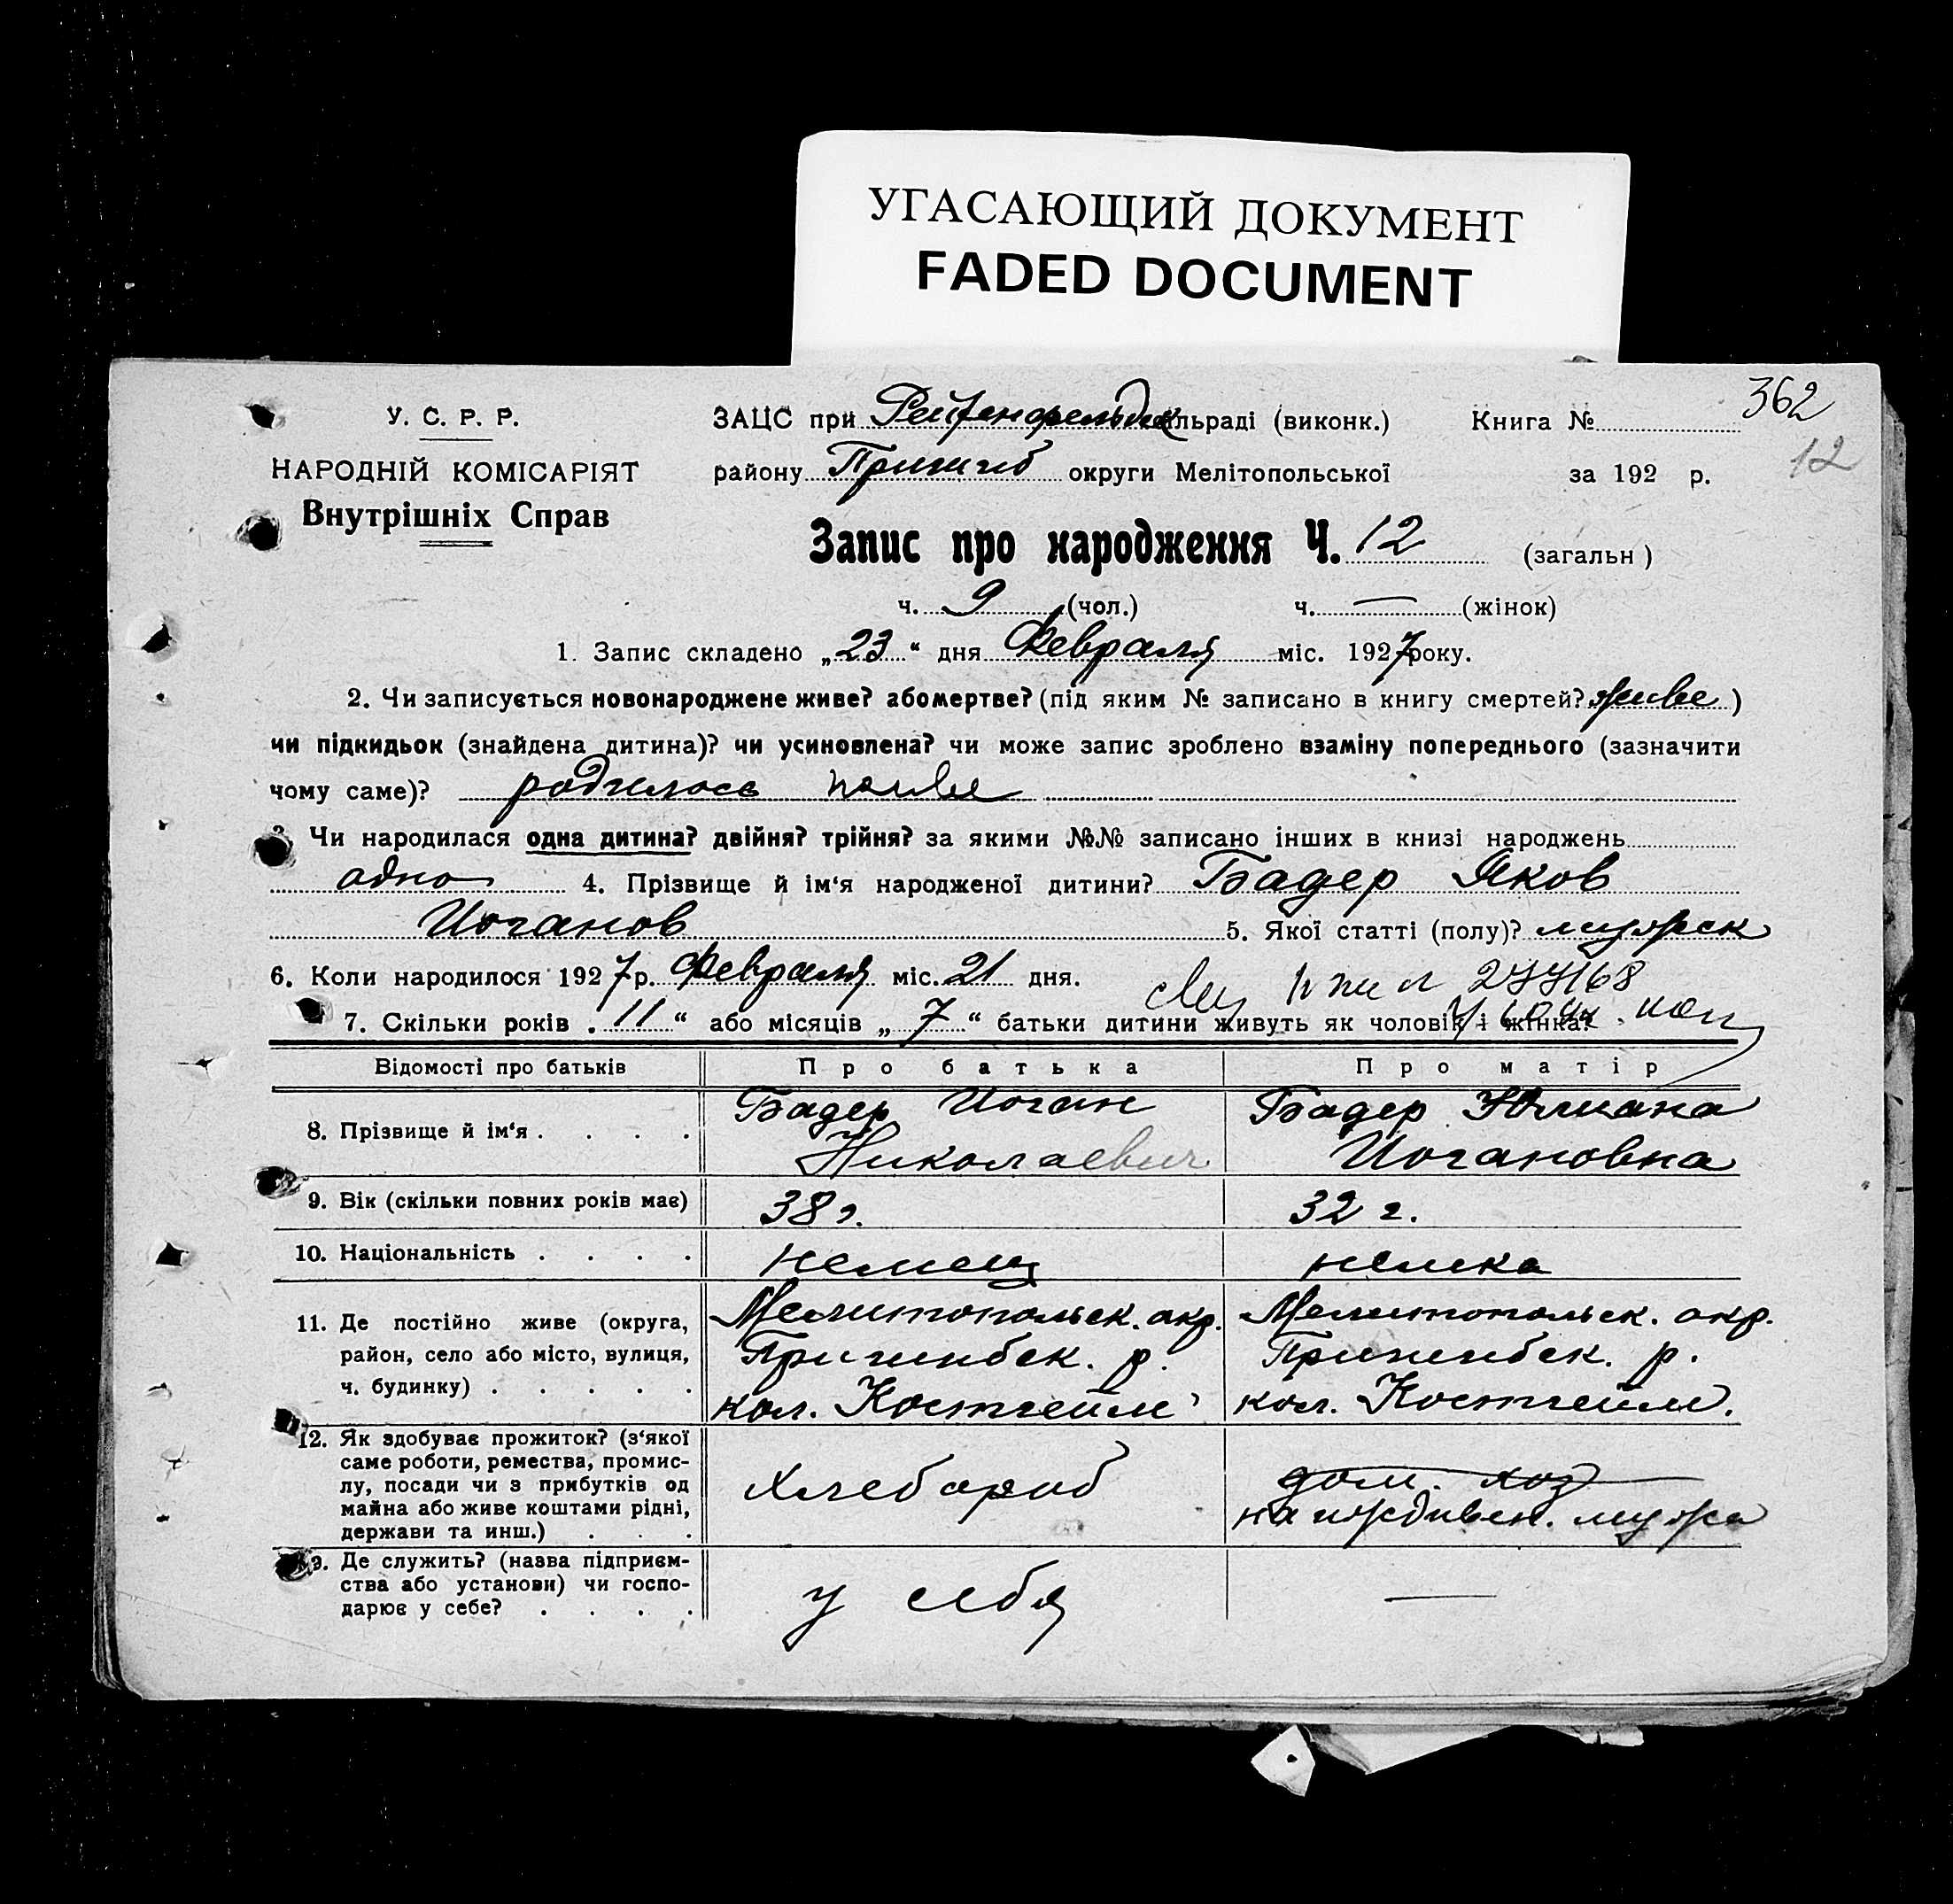 УГАСАЮЩИЙ ДОКУМЕНТ
FADED DOCUMENT
362
12
У. С. Р. Р.
НАРОДНІЙ КОМІСАРІЯТ
Внутрішніх Справ
ЗАЦС при Рейхенфельдск ільраді (виконк.) Книга №
району Пришиб округи Мелітопольської за 192 р.
Запис про народження Ч. 12 (загальн )
ч. 9 (чол.) ч. — (жінок)
1. Запис складено „23“ дня Февраля міс. 1927 року.
2. Чи записується новонароджене живе? або мертве? (під яким № записано в книгу смертей? живе)
чи підкидьок (знайдена дитина)? чи усиновлена? чи може запис зроблено взаміну попереднього (зазначити
чому саме)? родилось живе
3 Чи народилася одна дитина? двійня? трійня? за якими №№ записано інших в книзі народжень
одно 4. Прізвище й ім‘я народженої дитини? Бадер Яков
Иоганов 5. Якої статті (полу)? мужск
6. Коли народилося 1927 р. Февраля міс. 21 дня.
7. Скільки років „11“ або місяців „7“ батьки дитини живуть як чоловік і жінка?
Відомості про батьків Про батька Про матір
8. Прізвище й ім‘я . . . . Бадер Иоган Николаевич Бадер Юлиана Иогановна
9. Вік (скільки повних років має) 38 г. 32 г.
10. Національність . . . . немец немка
11. Де постійно живе (округа, Мелитопольск. окр. Мелитопольск. окр.
район, село або місто, вулиця, Пришибск. р. Пришибск. р.
ч. будинку) . . . . . кол. Костгейм кол. Костгейм.
12. Як здобуває прожиток? (з‘якої
саме роботи, ремества, промис-
лу, посади чи з прибутків од Хлебороб дом. хоз
майна або живе коштами рідні, на иждивен. мужа
держави та инш.) . . .
Де служить? (назва підприєм-
ства або установи) чи госпо- у себя —
дарює у себе? . . . .